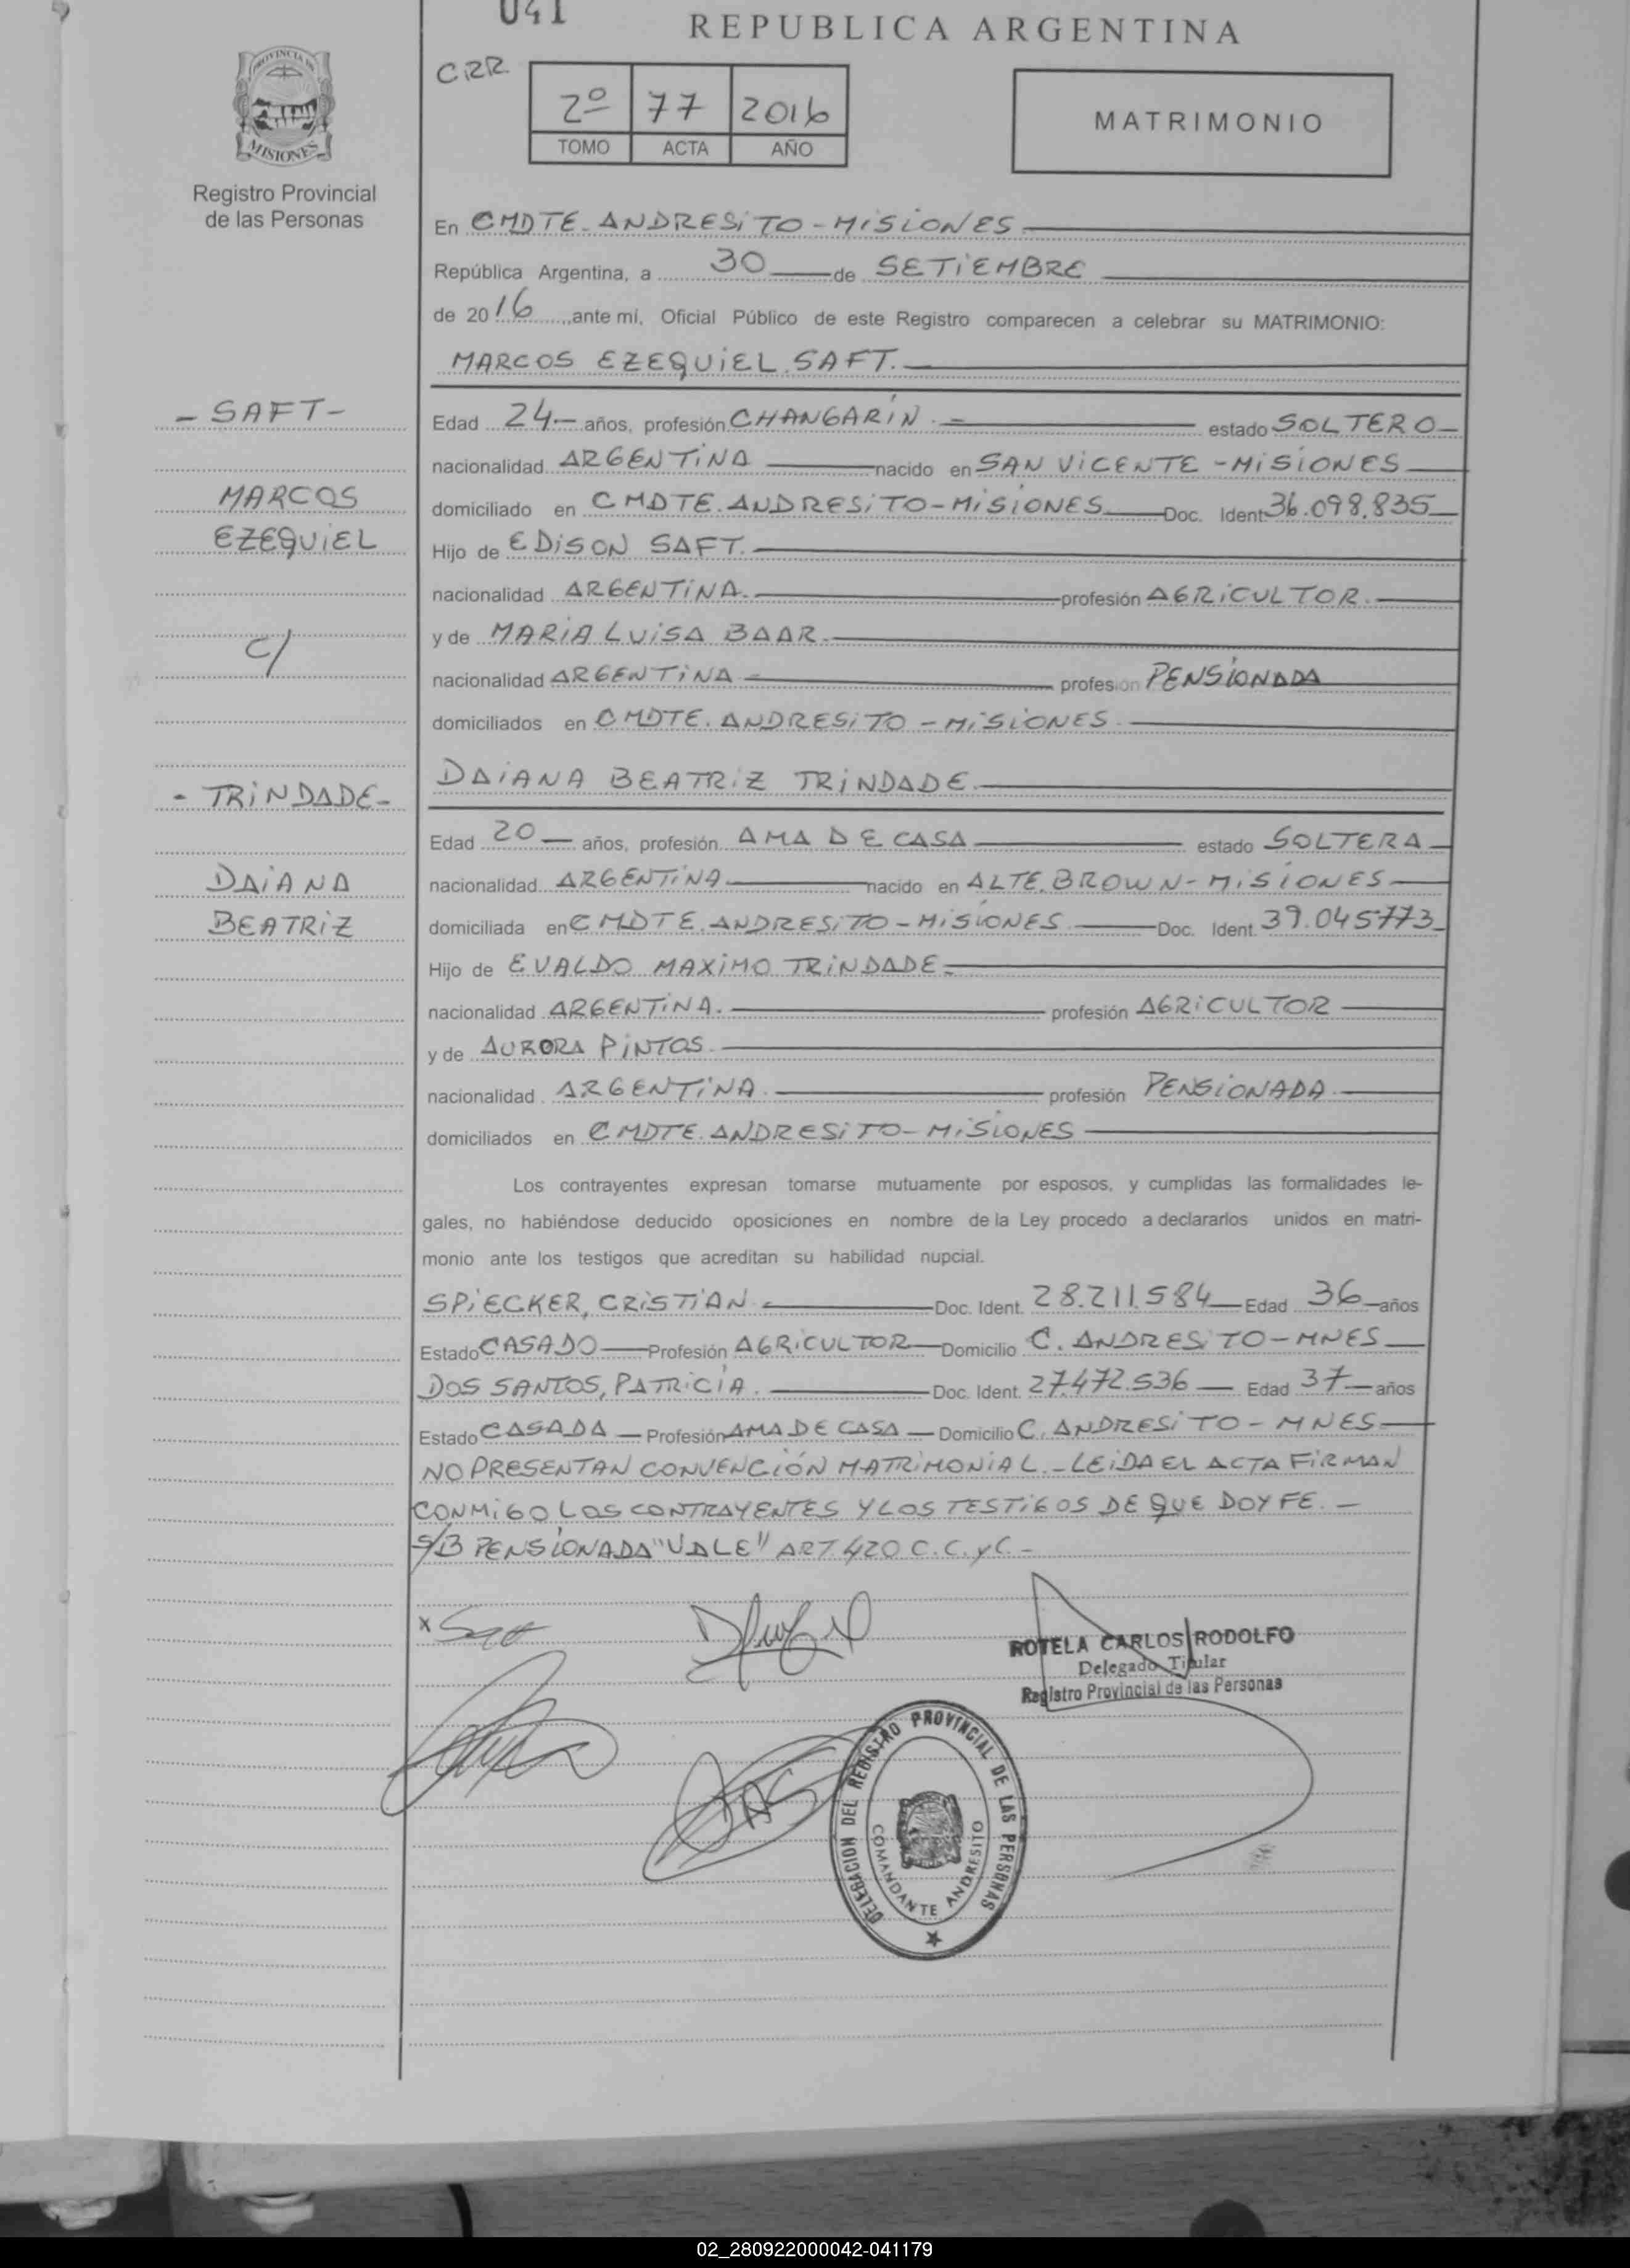 041
REPUBLICA ARGENTINA
CRR
2º 77 2016
TOMO ACTA AÑO
MATRIMONIO
PROVINCIA DE
MISIONES
Registro Provincial
de las Personas
En CMDTE. ANDRESITO - MISIONES
República Argentina, a 30 de SETIEMBRE
de 2016, ante mí, Oficial Público de este Registro comparecen a celebrar su MATRIMONIO:
MARCOS EZEQUIEL SAFT.
- SAFT -
Edad 24 años, profesión CHANGARÍN. estado SOLTERO
nacionalidad ARGENTINA nacido en SAN VICENTE - MISIONES
MARCOS
domiciliado en CMDTE. ANDRESITO - MISIONES Doc. Ident. 36.098.835
EZEQUIEL
Hijo de EDISON SAFT.
nacionalidad ARGENTINA. profesión AGRICULTOR.
c/
y de MARIA LUISA BAAR.
nacionalidad ARGENTINA profesión PENSIONADA
domiciliados en CMDTE. ANDRESITO - MISIONES.
DAIANA BEATRIZ TRINDADE.
- TRINDADE -
Edad 20 años, profesión AMA DE CASA estado SOLTERA
DAIANA
nacionalidad ARGENTINA nacido en ALTE. BROWN - MISIONES
BEATRIZ
domiciliada en CMDTE. ANDRESITO - MISIONES. Doc. Ident. 39.045773
Hijo de EVALDO MAXIMO TRINDADE.
nacionalidad ARGENTINA. profesión AGRICULTOR
y de AURORA PINTOS.
nacionalidad ARGENTINA. profesión PENSIONADA.
domiciliados en CMDTE. ANDRESITO - MISIONES
Los contrayentes expresan tomarse mutuamente por esposos, y cumplidas las formalidades le-
gales, no habiéndose deducido oposiciones en nombre de la Ley procedo a declararlos unidos en matri-
monio ante los testigos que acreditan su habilidad nupcial.
SPIECKER, CRISTIAN. Doc. Ident. 28.211.584 Edad 36 años
Estado CASADO Profesión AGRICULTOR Domicilio C. ANDRESITO - MNES
DOS SANTOS, PATRICIA. Doc. Ident. 27.472.536 Edad 37 años
Estado CASADA Profesión AMA DE CASA Domicilio C. ANDRESITO - MNES
NO PRESENTAN CONVENCIÓN MATRIMONIAL. - LEIDA EL ACTA FIRMAN
CONMIGO LOS CONTRAYENTES Y LOS TESTIGOS DE QUE DOY FE. -
S/B PENSIONADA "VALE" ART. 420 C.C. y C. -
x
ROTELA CARLOS RODOLFO
Delegado Titular
Registro Provincial de las Personas
DELEGACION DEL REGISTRO PROVINCIAL DE LAS PERSONAS
COMANDANTE ANDRESITO
02_280922000042-041179